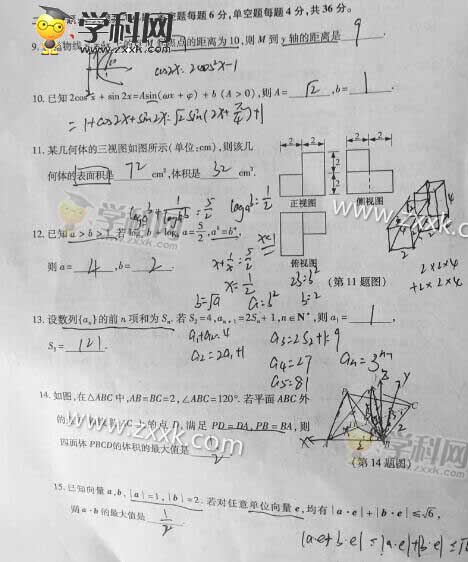 每题6分，单空题每题4分，共36分。
焦点的距离为10，则 M 到 y 轴的距离是 9 .
cos2x = 2cos²x-1
10. 已知 2cos²x + sin 2x=Asin(ωx + φ) + b (A > 0)，则 A= √2 ，b= 1 .
= 1+cos2x+sin2x = √2 sin(2x+π/4)+1
11. 某几何体的三视图如图所示(单位：cm)，则该几
何体的表面积是 72 cm²，体积是 32 cm³.
2 2 2 2
2
2
正视图 侧视图
俯视图
(第 11 题图)
2×2×4
+2×2×4
学科网
www.zxxk.com
12. 已知 a > b > 1. 若 logₐb + log_b a = 5/2，aᵇ=bᵃ，
则 a= 4 ，b= 2 .
logₐb + 1/logₐb = 5/2
logₐb = 1/2
x+1/x = 5/2
x = 1/2
b=√a a=b² 2b=b² b=2
13. 设数列{aₙ}的前 n 项和为 Sₙ. 若 S₂=4，aₙ₊₁=2Sₙ+1，n∈N*，则 a₁= 1 ，
S₅= 121 .
a₁+a₂=4
a₂=2a₁+1
a₃=2S₂+1=9
a₄=27
a₅=81
aₙ=3ⁿ⁻¹
14. 如图，在△ABC 中，AB=BC=2，∠ABC=120°. 若平面 ABC 外
的点 D，满足 PD=DA，PB=BA，则
四面体 PBCD的体积的最大值是 1/2
(第 14 题图)
15. 已知向量 a，b，|a|=1，|b|=2. 若对任意单位向量 e，均有 |a·e|+|b·e|≤√6，
则 a·b 的最大值是 1/2
|a·e+b·e| ≤ |a·e|+|b·e| ≤